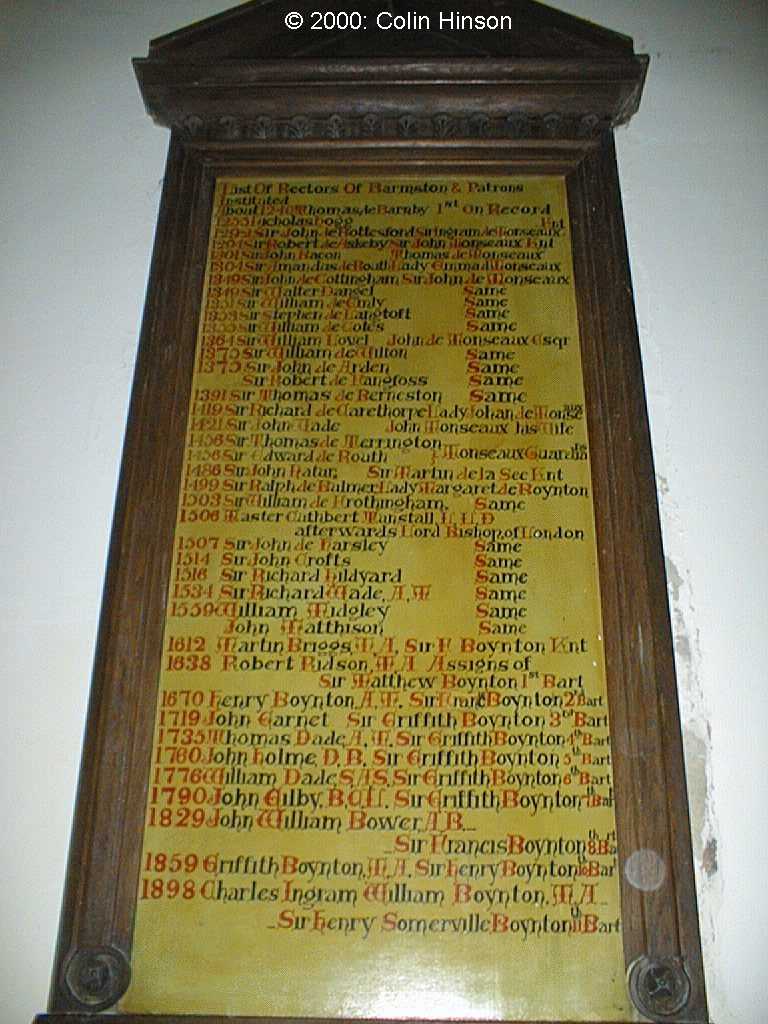 © 2000: Colin Hinson
List Of Rectors Of Barmston & Patrons
Instituted
About 1240 Thomas de Barnby 1st On Record
1233 Nicholas Hogg Knt
1292 Sir John de Rottesford Sir Ingram de Monseaux
1294 Sir Robert de Askeby Sir John Monseaux Knt
1301 Sir John Bacon Thomas de Monseaux
1304 Sir Amandus de Routh Lady Emma de Monseaux
1349 Sir John de Cottingham Sir John de Monseaux
1349 Sir Walter Dangel Same
1351 Sir William de Emly Same
1353 Sir Stephen de Langtoft Same
1355 Sir William de Cotes Same
1364 Sir William Lovel John de Monseaux Esqr
1375 Sir William de Wilton Same
1375 Sir John de Arden Same
Sir Robert de Fangfoss Same
1391 Sir Thomas de Berneston Same
1419 Sir Richard de Garethorpe Lady Johan de Monse aux
1421 Sir John Wade John Monseaux his Wife
1456 Sir Thomas de Merrington
1456 Sir Edward de Routh Monseaux Guardns
1486 Sir John Ratur, Sir Martin de la See Knt
1499 Sir Ralph de Bulmer Lady Margaret de Boynton
1503 Sir William de Frothingham, Same
1506 Master Cuthbert Tunstall, L.L.D
afterwards Lord Bishop of London
1507 Sir John de Harsley Same
1514 Sir John Crofts Same
1516 Sir Richard Hildyard Same
1534 Sir Richard Wade, A.M Same
1559 William Midgley Same
John Matthison Same
1612 Martin Briggs, M.A, Sir F. Boynton Knt
1638 Robert Ridson, M.A Assigns of
Sir Matthew Boynton 1st Bart
1670 Henry Boynton, A.M, Sir Francis Boynton 2nd Bart
1719 John Garnet Sir Griffith Boynton 3rd Bart
1735 Thomas Dade, A.M, Sir Griffith Boynton 4th Bart
1760 John Holme, D.B, Sir Griffith Boynton 5th Bart
1776 William Dade, S.A.S, Sir Griffith Boynton 6th Bart
1790 John Gilby, B.C.L. Sir Griffith Boynton 7th Bart
1829 John William Bower, A.B.
Sir Francis Boynton 8th Bart
1859 Griffith Boynton, M.A, Sir Henry Boynton 10th Bart
1898 Charles Ingram William Boynton, M.A
Sir Henry Somerville Boynton 11th Bart